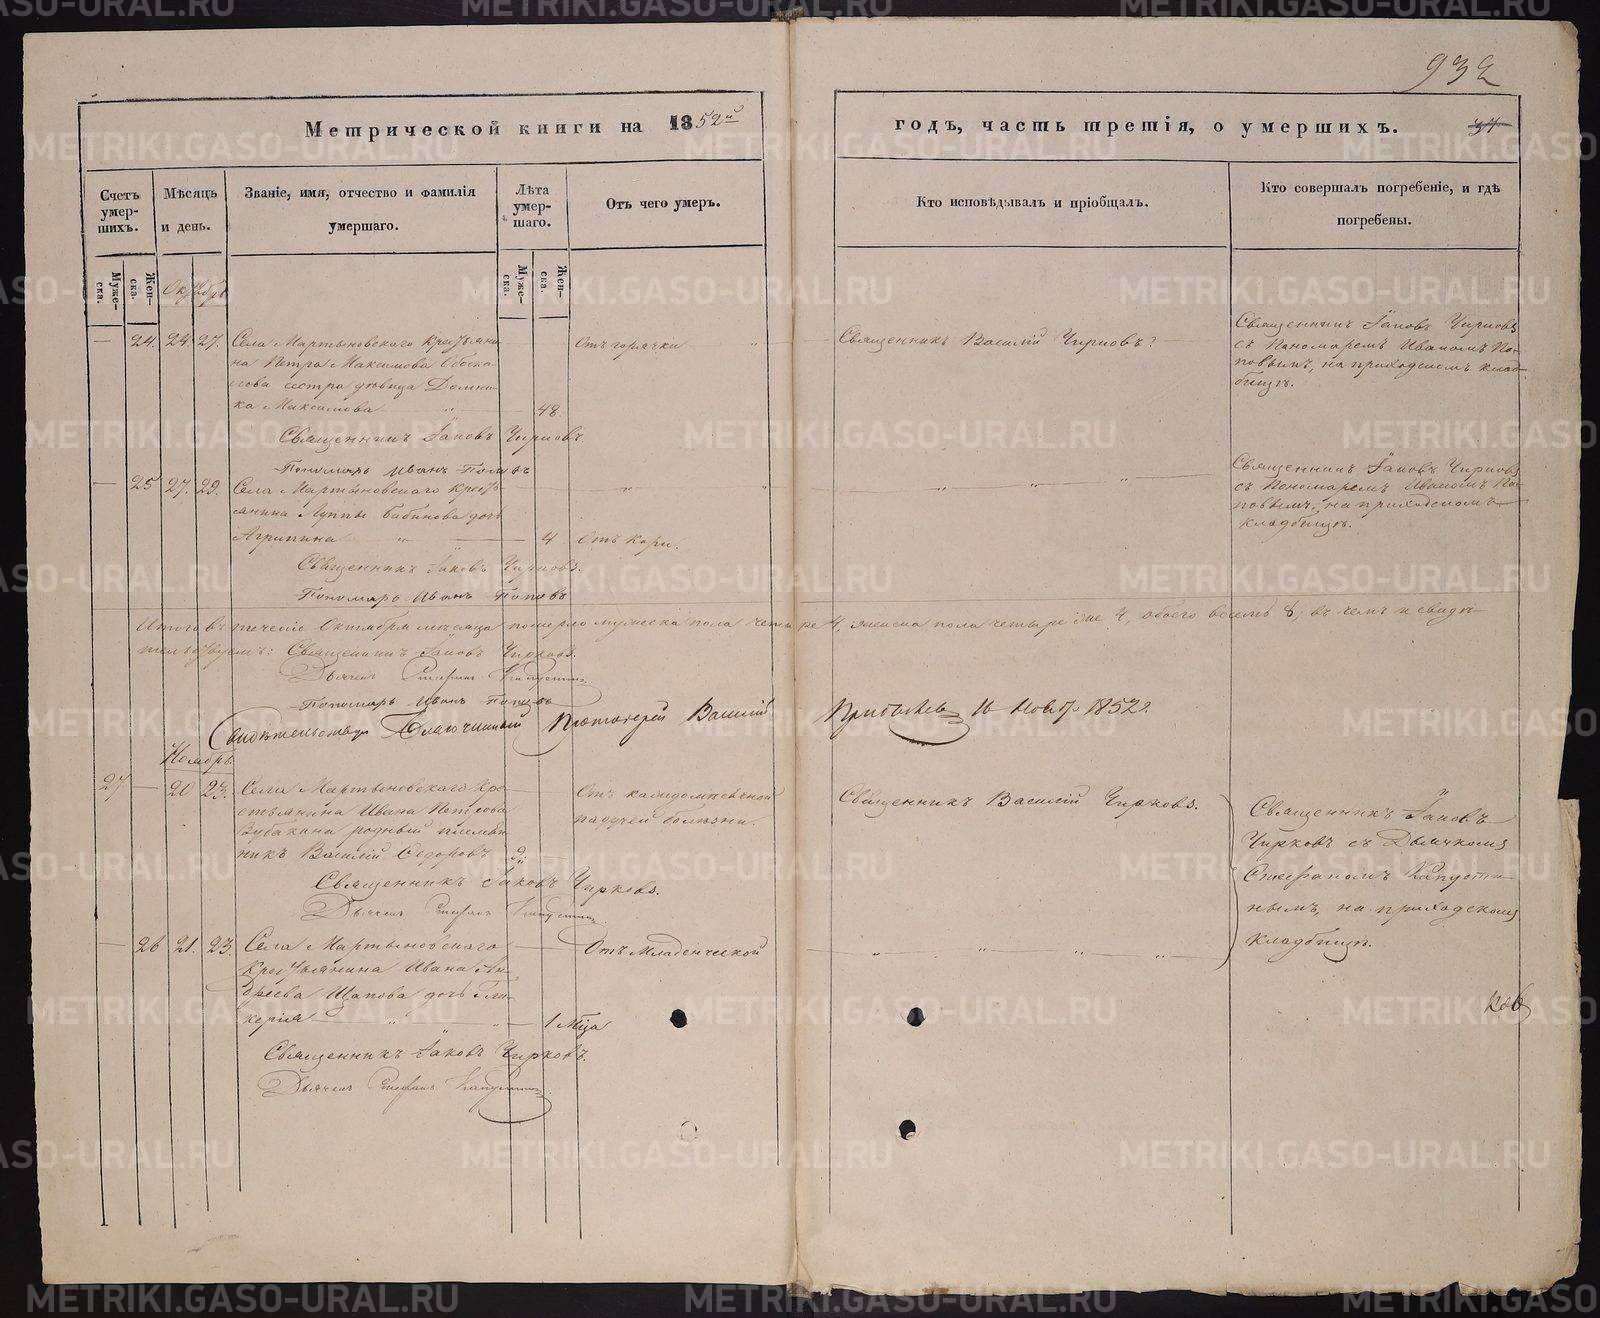 932
Метрической книги на 1852й
годъ, часть третія, о умершихъ.
Счетъ умер-шихъ.
Мѣсяцъ и день.
Званіе, имя, отчество и фамилія умершаго.
Лѣта умер-шаго.
Отъ чего умеръ.
Кто исповѣдывалъ и пріобщалъ.
Кто совершалъ погребеніе, и гдѣ погребены.
Муже-ска.
Жен-ска.
Муже-ска.
Жен-ска.
— 24. 24 27. Села Мартыновскаго Крестьяни-
на Петра Максимова
сестра дѣвица Домни-
ка Максимова 48
Отъ горячки
Священникъ Василій Чирковъ
Священникъ Іаковъ Чирковъ
съ Пономаремъ Иваномъ По-
повымъ, на приходскомъ клад-
бищѣ.
Священникъ Іаковъ Чирковъ
Пономарь Иванъ Поповъ
— 25 27. 29. Села Мартыновскаго Кресть-
янина Луппы Бабинова дочь
Агрипина 4 Отъ кори.
Священникъ Іаковъ Чирковъ
съ Пономаремъ Иваномъ По-
повымъ, на приходскомъ
кладбищѣ.
Священникъ Іаковъ Чирковъ.
Пономарь Иванъ Поповъ
Итого въ теченіе Октября мѣсяца померло мужеска пола четыре 4, женска пола четыре же 4, обоего восемь 8, въ чемъ и свидѣ-
тельствуемъ: Священникъ Іаковъ Чирковъ.
Дьячекъ Стефанъ Капустинъ
Пономарь Иванъ Поповъ
Благочинный Протоіерей Василій
1852.
Ноябрь.
27 — 20 23. Села Мартыновскаго Кре-
стьянина Ивана Петрова
Зубакина родный племян-
никъ Василій Ѳедоровъ
падучей болѣзни.
Священникъ Василій Чирковъ.
Священникъ Іаковъ
Чирковъ съ Дьячкомъ
Стефаномъ Капусти-
нымъ, на приходскомъ
кладбищѣ.
Священникъ Іаковъ Чирковъ.
Дьячекъ Стефанъ Капустинъ
— 26 21. 23. Села Мартыновскаго
Крестьянина Ивана Ан-
дреева Щапова дочь Гли-
керія 1 Мца
Отъ Младенческой
Священникъ Іаковъ Чирковъ.
Дьячекъ Стефанъ Капустинъ
METRIKI.GASO-URAL.RU